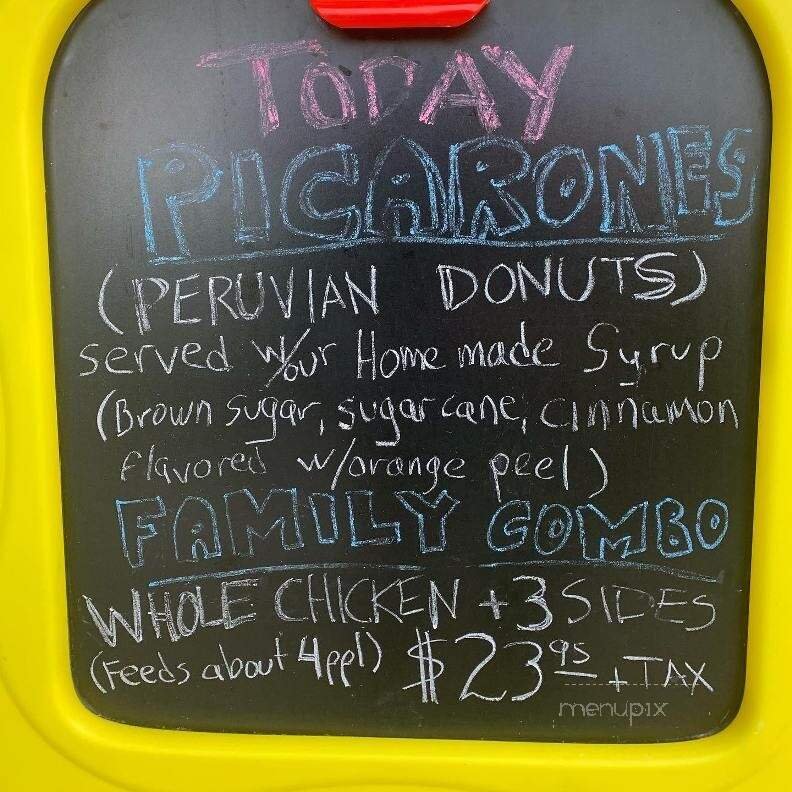 TODAY
PICARONES
(PERUVIAN DONUTS)
served w/our Home made Syrup
(Brown sugar, sugar cane, cinnamon
flavored w/orange peel)
FAMILY COMBO
WHOLE CHICKEN + 3 SIDES
(Feeds about 4 ppl) $23.95 + TAX
menupix